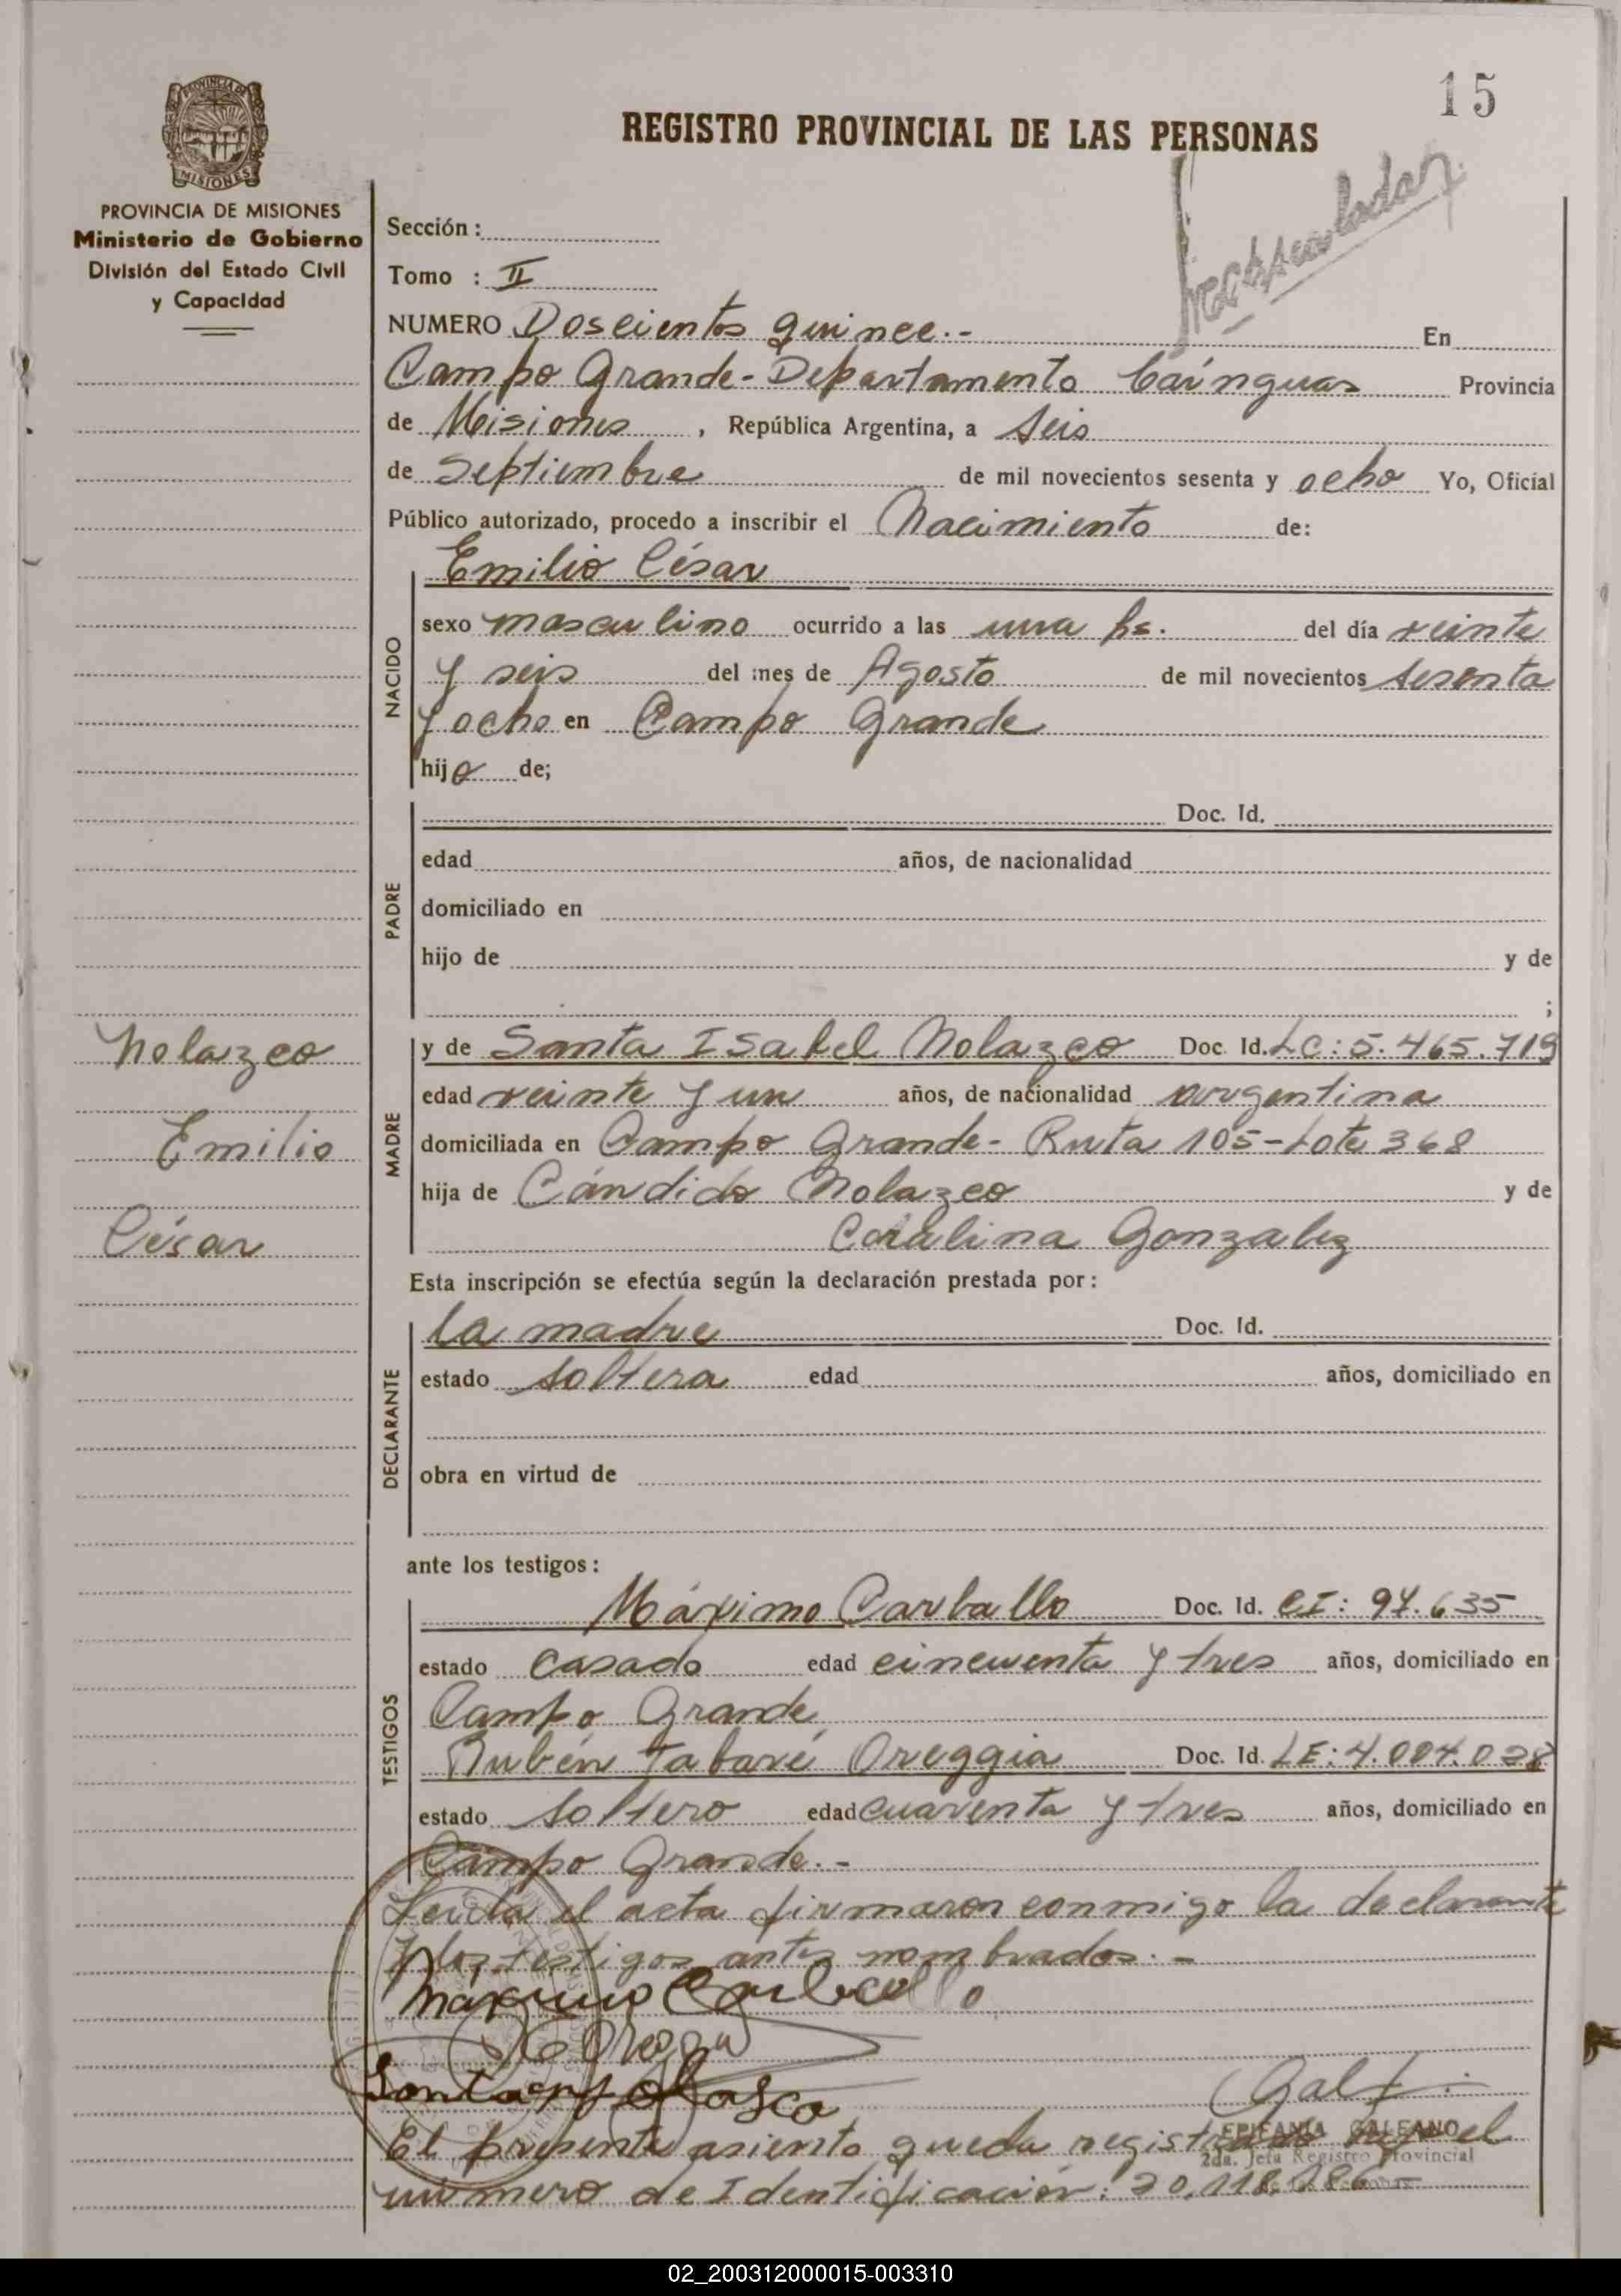 15
REGISTRO PROVINCIAL DE LAS PERSONAS
PROVINCIA DE MISIONES
Ministerio de Gobierno
División del Estado Civil
y Capacidad
Sección :
Tomo : II
NUMERO Doscientos quince.- En
Campo Grande - Departamento Cainguas Provincia
de Misiones , República Argentina, a seis
de Septiembre de mil novecientos sesenta y ocho Yo, Oficial
Público autorizado, procedo a inscribir el Nacimiento de:
Emilio César
NACIDO
sexo masculino ocurrido a las una hs. del día veinte
y seis del mes de Agosto de mil novecientos sesenta
y ocho en Campo Grande
hijo de;
PADRE
Doc. Id.
edad años, de nacionalidad
domiciliado en
hijo de y de
;
Nolazco
Emilio
César
MADRE
y de Santa Isabel Nolazco Doc. Id. LC: 5.465.719
edad veinte y un años, de nacionalidad argentina
domiciliada en Campo Grande - Ruta 105 - Lote 368
hija de Cándido Nolazco y de
Gonzalez
Esta inscripción se efectúa según la declaración prestada por :
DECLARANTE
la madre Doc. Id.
estado soltera edad años, domiciliado en
obra en virtud de
ante los testigos :
TESTIGOS
Máximo Carballo Doc. Id. CI: 97.635
estado casado edad cincuenta y tres años, domiciliado en
Campo Grande
Rubén Tabaré Oreggia Doc. Id. LE: 4.004.028
estado soltero edad cuarenta y tres años, domiciliado en
Campo Grande.-
Leida el acta firmaron conmigo la declarante
y los testigos antes nombrados.-
Maximo Carballo
EPIFANIA GALEANO
2da. Jefa Registro Provincial
El presente asiento queda registrado bajo el
número de Identificación: 20.118.186
02_200312000015-003310